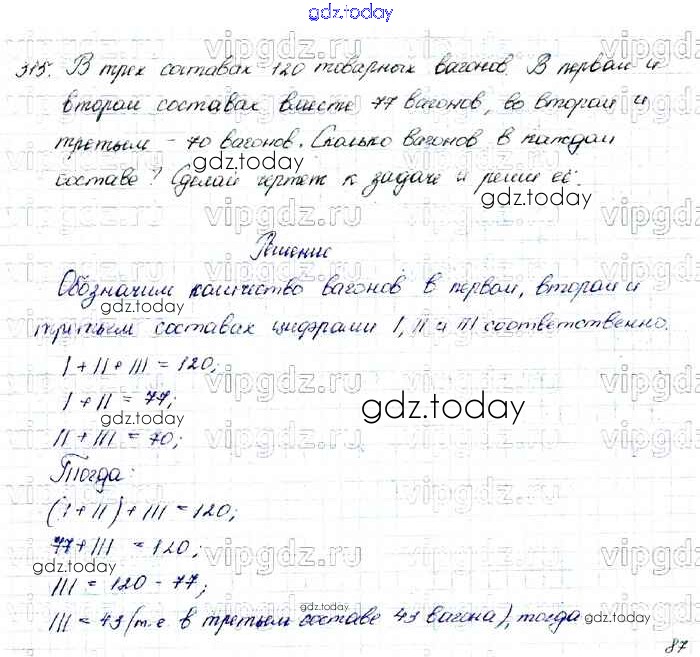 gdz.today
315. В трех составах 120 товарных вагонов. В первом и
втором составах вместе 77 вагонов, во втором и
третьем - 70 вагонов. Сколько вагонов в каждом
gdz.today
составе? Сделай чертеж к задаче и реши её.
gdz.today
Решение
Обозначим количество вагонов в первом, втором и
gdz.today
третьем составах цифрами I, II и III соответственно.
I + II + III = 120;
I + II = 77;
gdz.today
gdz.today
II + III = 70;
Тогда:
(I + II) + III = 120;
77 + III = 120;
gdz.today
III = 120 - 77;
gdz.today
III = 43 (т.е в третьем составе 43 вагона), тогда
87
vipgdz.ru